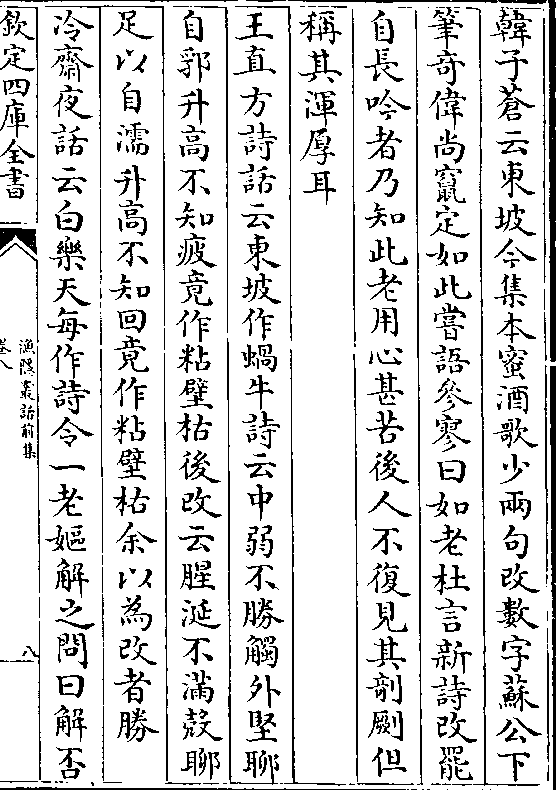 韓子蒼云東坡今集本蜜酒歌少兩句改數字蘇公下
筆奇偉尚竄定如此嘗語參寥曰如老杜言新詩改罷
自長吟者乃知此老用心甚苦後人不復見其剞劂但
稱其渾厚耳
王直方詩話云東坡作蝸牛詩云中弱不勝觸外堅聊
自郛升高不知疲竟作粘壁枯後改云腥涎不滿殼聊
足以自濡升高不知回竟作粘壁枯余以為改者勝
冷齋夜話云白樂天每作詩令一老嫗解之問曰解否
欽定四庫全書
漁隱叢話前集
卷八
八